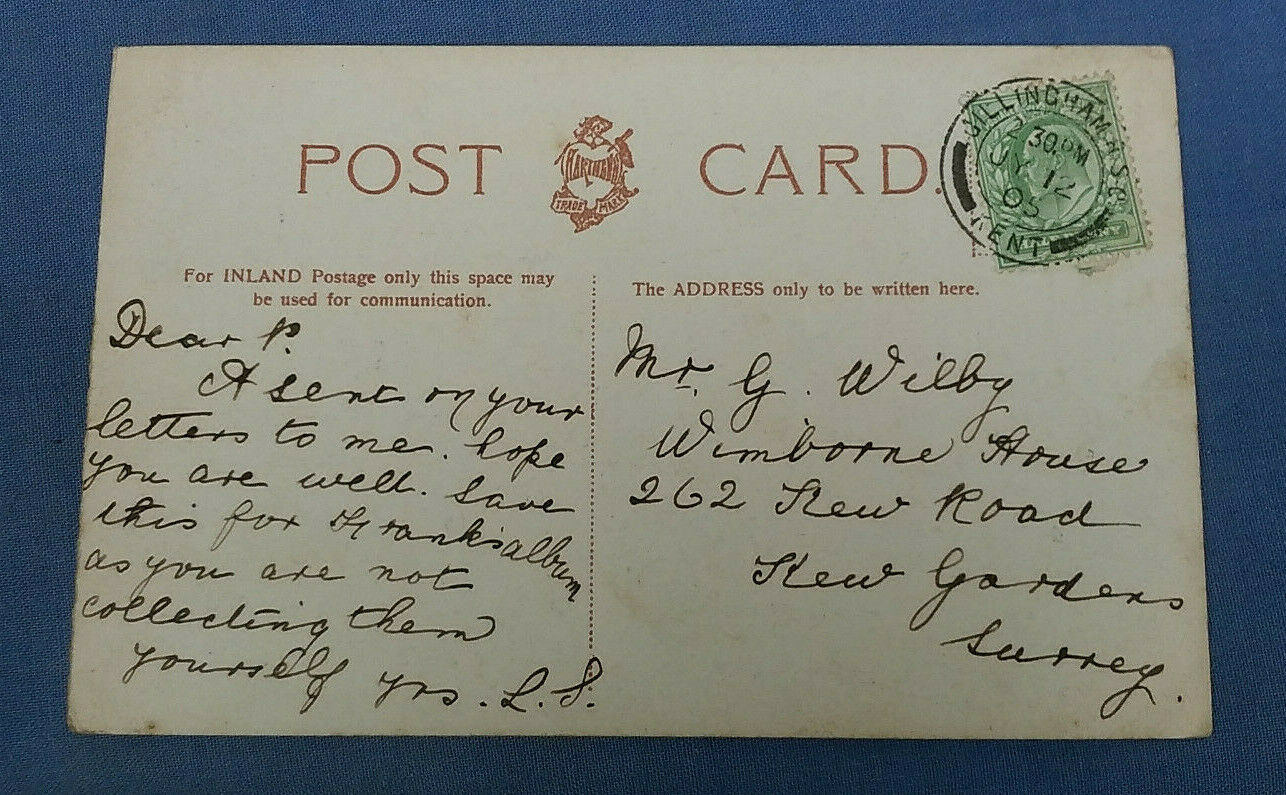 POST CARD.
HARTMANN
TRADE MARK
GILLINGHAM S.O.
2 30 PM
JY 12
05
KENT
For INLAND Postage only this space may
be used for communication.
The ADDRESS only to be written here.
Dear P.
A sent on your
letters to me. hope
you are well. Save
this for Frank's album
as you are not
collecting them
yourself yrs. L. S.
Mr. G. Wilby
Wimborne House
262 Kew Road
Kew Gardens
Surrey.